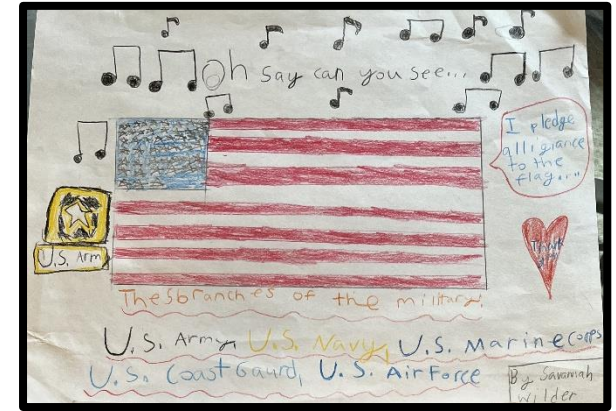 Oh say can you see...
I pledge
alligiance
to the
flag....
U.S. Arm
Thank
The5branches of the military.
U.S. Army, U.S. Navy, U.S. Marine Corps
U.S. Coast Gaurd, U.S. Air Force
By Savannah
Wilder